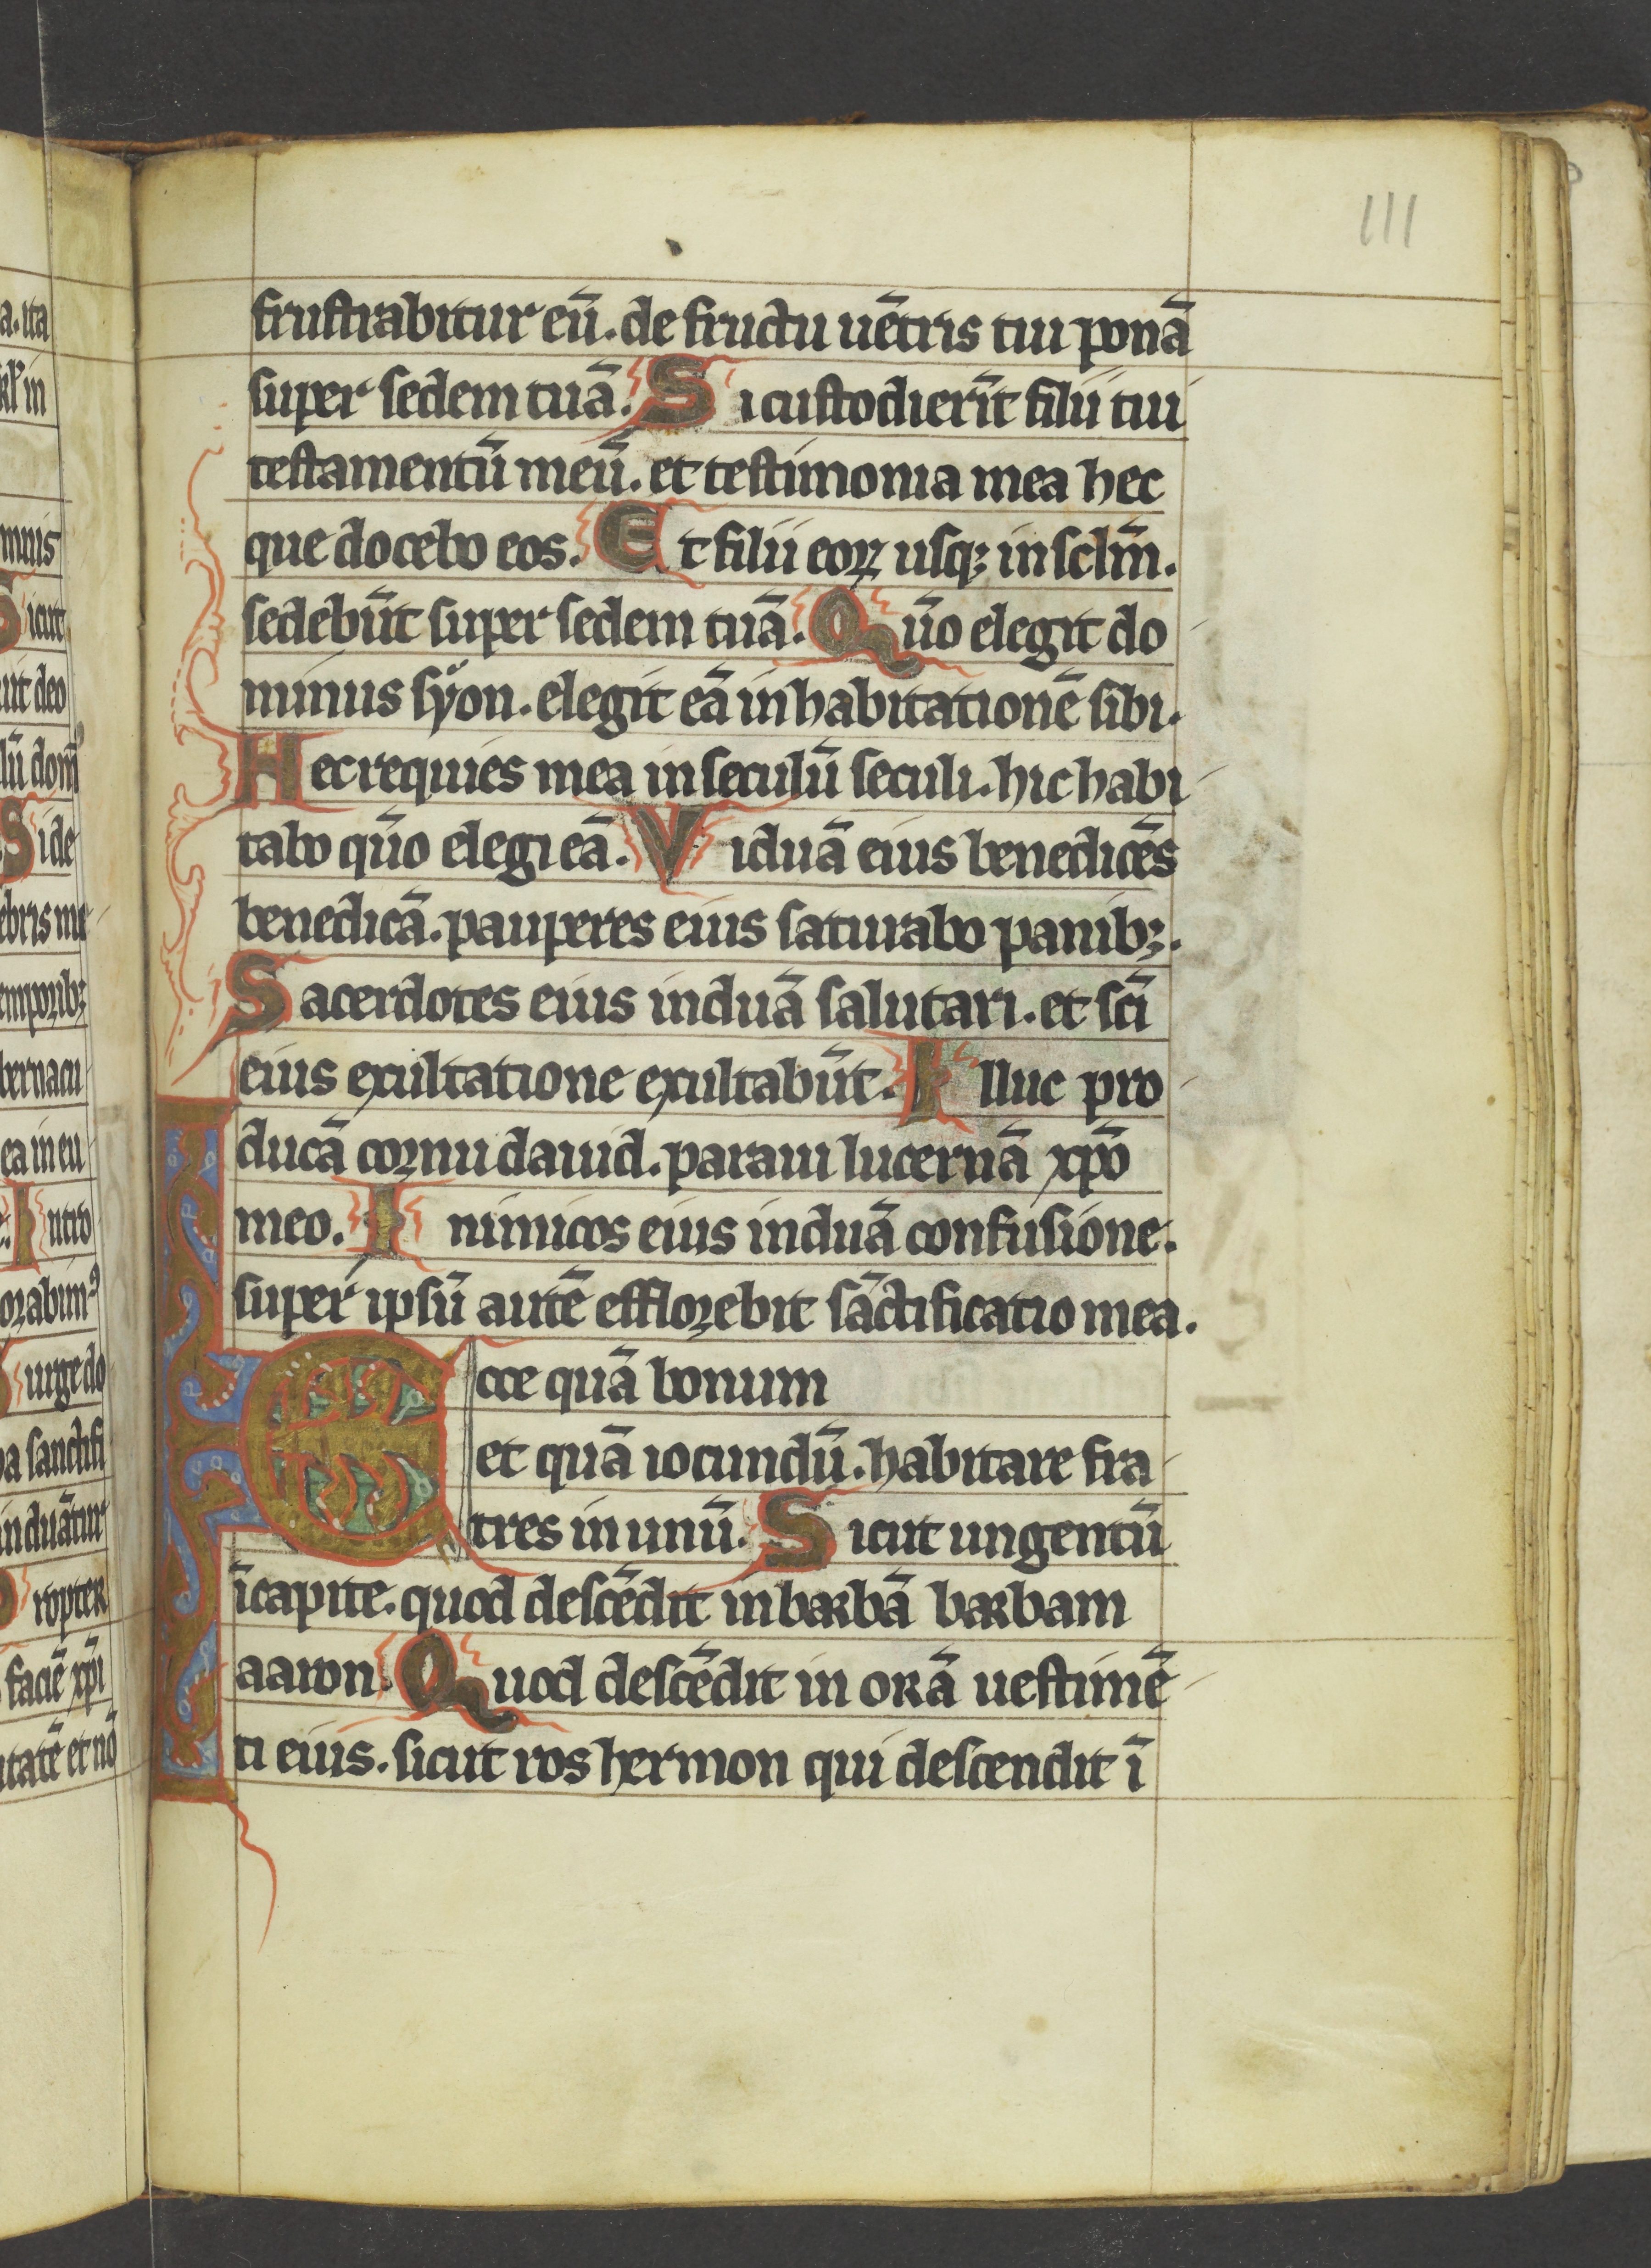 111
frustrabitur eū. de fructu uētris tui ponā
super sedem tuā. Si custodierīt filii tui
testamentū meū. et testimonia mea hec
que docebo eos. Et filii eoꝝ usqꝫ in sclm̄.
sedebūt super sedem tuā. Qūo elegit do
minus syon. elegit eā in habitationē sibi.
Hec requies mea in seculū seculi. hic habi
tabo qūo elegi eā. Viduā eius benedicēs
benedicā. pauperes eius saturabo panibꝫ.
Sacerdotes eius induā salutari. et sc̄i
eius exultatione exultabūt. Illuc pro
ducā cornu dauid. paraui lucernā xp̄o
meo. Inimicos eius induā confusione.
super ipsū autē efflorebit sāctificatio mea.
Ecce quā bonum
et quā iocundū. habitare fra
tres in unū. Sicut ungentū
ī capite. quod descēdit in barbā barbam
aaron. Quod descēdit in orā uestimē
ti eius. sicut ros hermon qui descendit ī